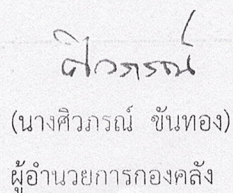 ศิวภรณ์
(นางศิวภรณ์ ขันทอง)
ผู้อำนวยการกองคลัง